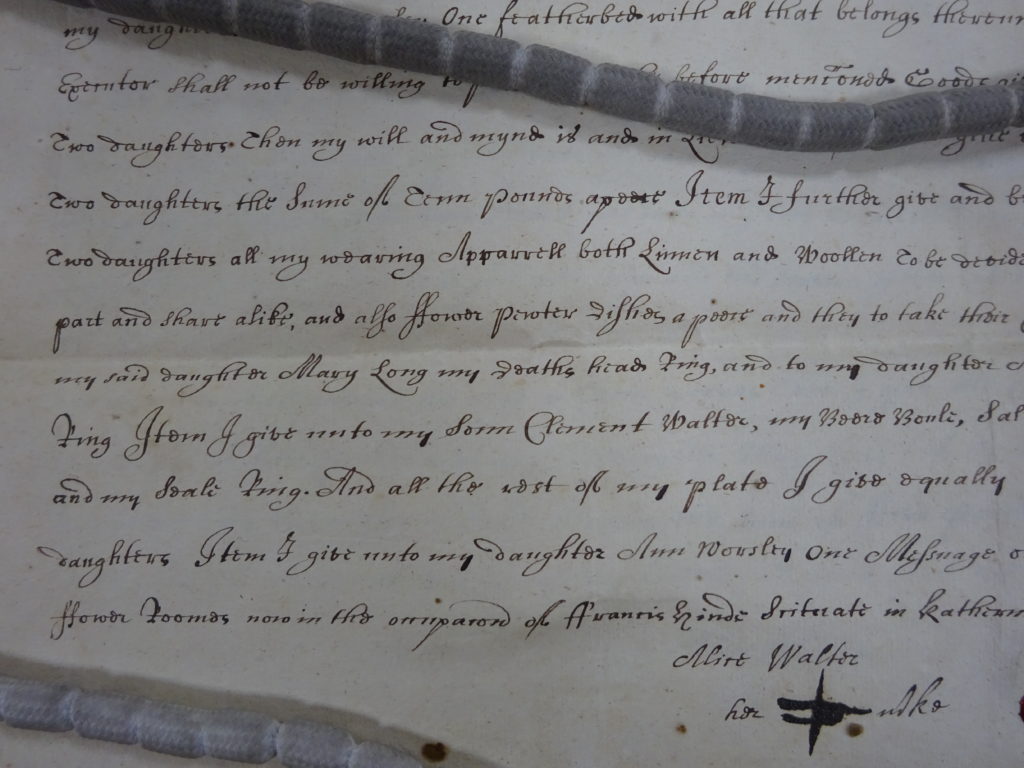 my daughter One featherbed with all that belongs thereun
Executor shall not be willing to before menc̃oned Goods
Two daughters Then my will and mynd is and in Lieu give
Two daughters the Sume of Tenn pounds apeece Item I further give and b
Two daughters all my wearing Apparrell both Linnen and Woollen To be devide
part and share alike, and also ffower Pewter dishes apeece and they to take their
my said daughter Mary Long my deaths head Ring, and to my daughter
Ring Item I give unto my Sonn Clement Walter, my Beere Boule, Sal
and my Seale Ring. And all the rest of my plate I give equally
daughters Item I give unto my daughter Ann Worsley One Messuage o
ffower Roomes now in the occupacon of ffrancis Hinde Scituate in Kathern
Alice Walter
her mke